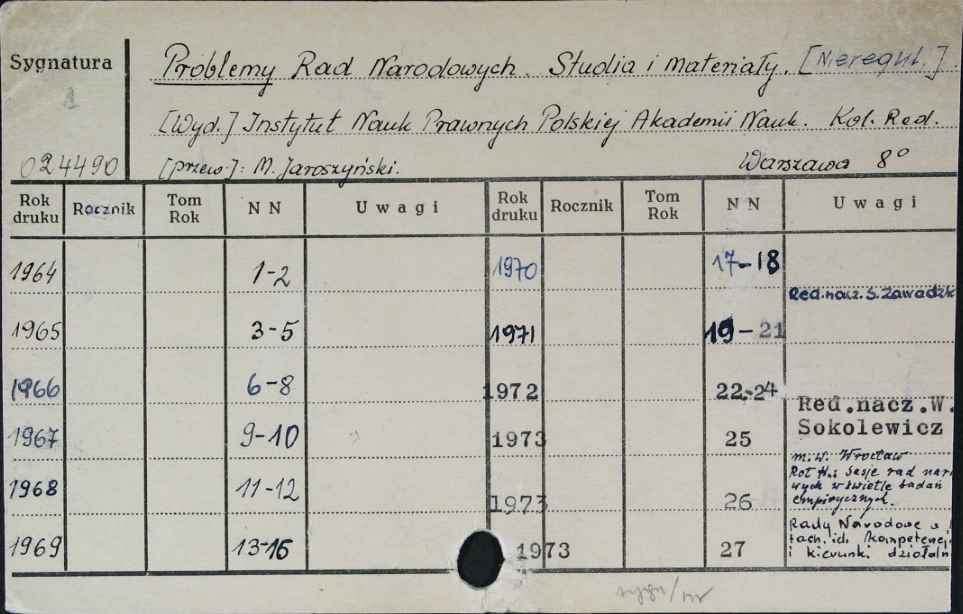 Sygnatura
1
024490
Problemy Rad Narodowych. Studia i materiały. [Nieregul.]
[Wyd.] Instytut Nauk Prawnych Polskiej Akademii Nauk. Kol. Red.
[przew.]: M. Jaroszyński. Warszawa 8°
Rok druku Rocznik Tom Rok NN Uwagi Rok druku Rocznik Tom Rok NN Uwagi
1964 1-2 1970 17-18
Red. nacz. S. Zawadzk
1965 3-5 1971 19-21
1966 6-8 1972 22-24
Red.nacz.W.
Sokolewicz
1967 9-10 1973 25
m.w. Wrocław
Sesje rad nar
wych w świetle badań
empirycznych.
1968 11-12 1973 26
Rady Narodowe
tach. ich kompetencj
i kierunki działaln
1969 13-16 1973 27